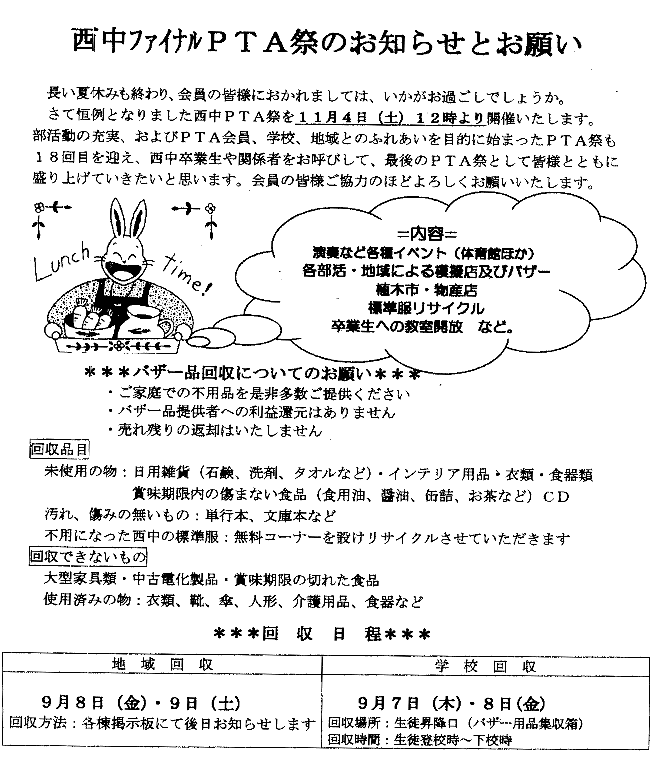 西中ファイナルＰＴＡ祭のお知らせとお願い
長い夏休みも終わり、会員の皆様におかれましては、いかがお過ごしでしょうか。
さて恒例となりました西中ＰＴＡ祭を１１月４日（土）１２時より開催いたします。
部活動の充実、およびＰＴＡ会員、学校、地域とのふれあいを目的に始まったＰＴＡ祭も
１８回目を迎え、西中卒業生や関係者をお呼びして、最後のＰＴＡ祭として皆様とともに
盛り上げていきたいと思います。会員の皆様ご協力のほどよろしくお願いいたします。
Lunch time!
＝内容＝
演奏など各種イベント（体育館ほか）
各部活・地域による模擬店及びバザー
植木市・物産店
標準服リサイクル
卒業生への教室開放　など。
＊＊＊バザー品回収についてのお願い＊＊＊
・ご家庭での不用品を是非多数ご提供ください
・バザー品提供者への利益還元はありません
・売れ残りの返却はいたしません
回収品目
未使用の物：日用雑貨（石鹸、洗剤、タオルなど）・インテリア用品・衣類・食器類
賞味期限内の傷まない食品（食用油、醤油、缶詰、お茶など）ＣＤ
汚れ、傷みの無いもの：単行本、文庫本など
不用になった西中の標準服：無料コーナーを設けリサイクルさせていただきます
回収できないもの
大型家具類・中古電化製品・賞味期限の切れた食品
使用済みの物：衣類、靴、傘、人形、介護用品、食器など
＊＊＊回　収　日　程＊＊＊
地　域　回　収
９月８日（金）・９日（土）
回収方法：各棟掲示板にて後日お知らせします
学　校　回　収
９月７日（木）・８日（金）
回収場所：生徒昇降口（バザー用品集収箱）
回収時間：生徒登校時～下校時